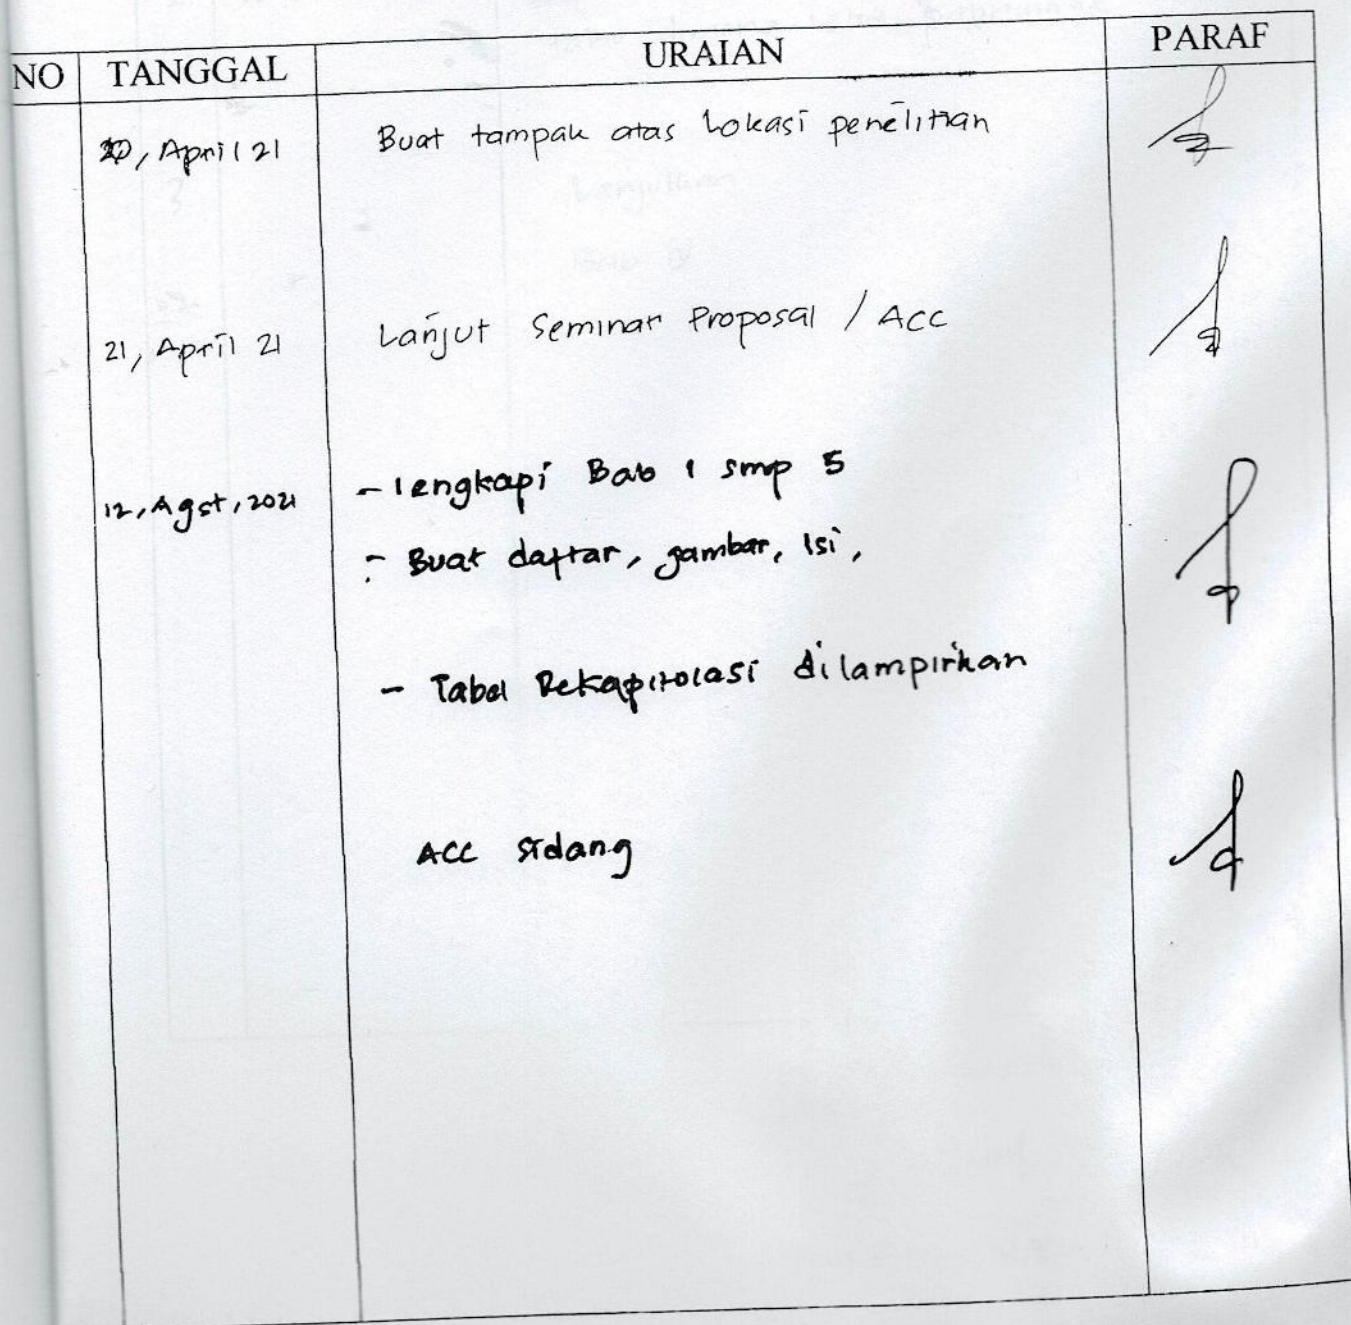 NO TANGGAL URAIAN PARAF
20, April 21 Buat tampak atas Lokasi penelitian
21, April 21 Lanjut Seminar Proposal / Acc
12, Agst, 2021 - lengkapi Bab 1 smp 5
- Buat daftar, gambar, Isi,
- Tabel Rekapitolasi dilampirkan
ACC sidang